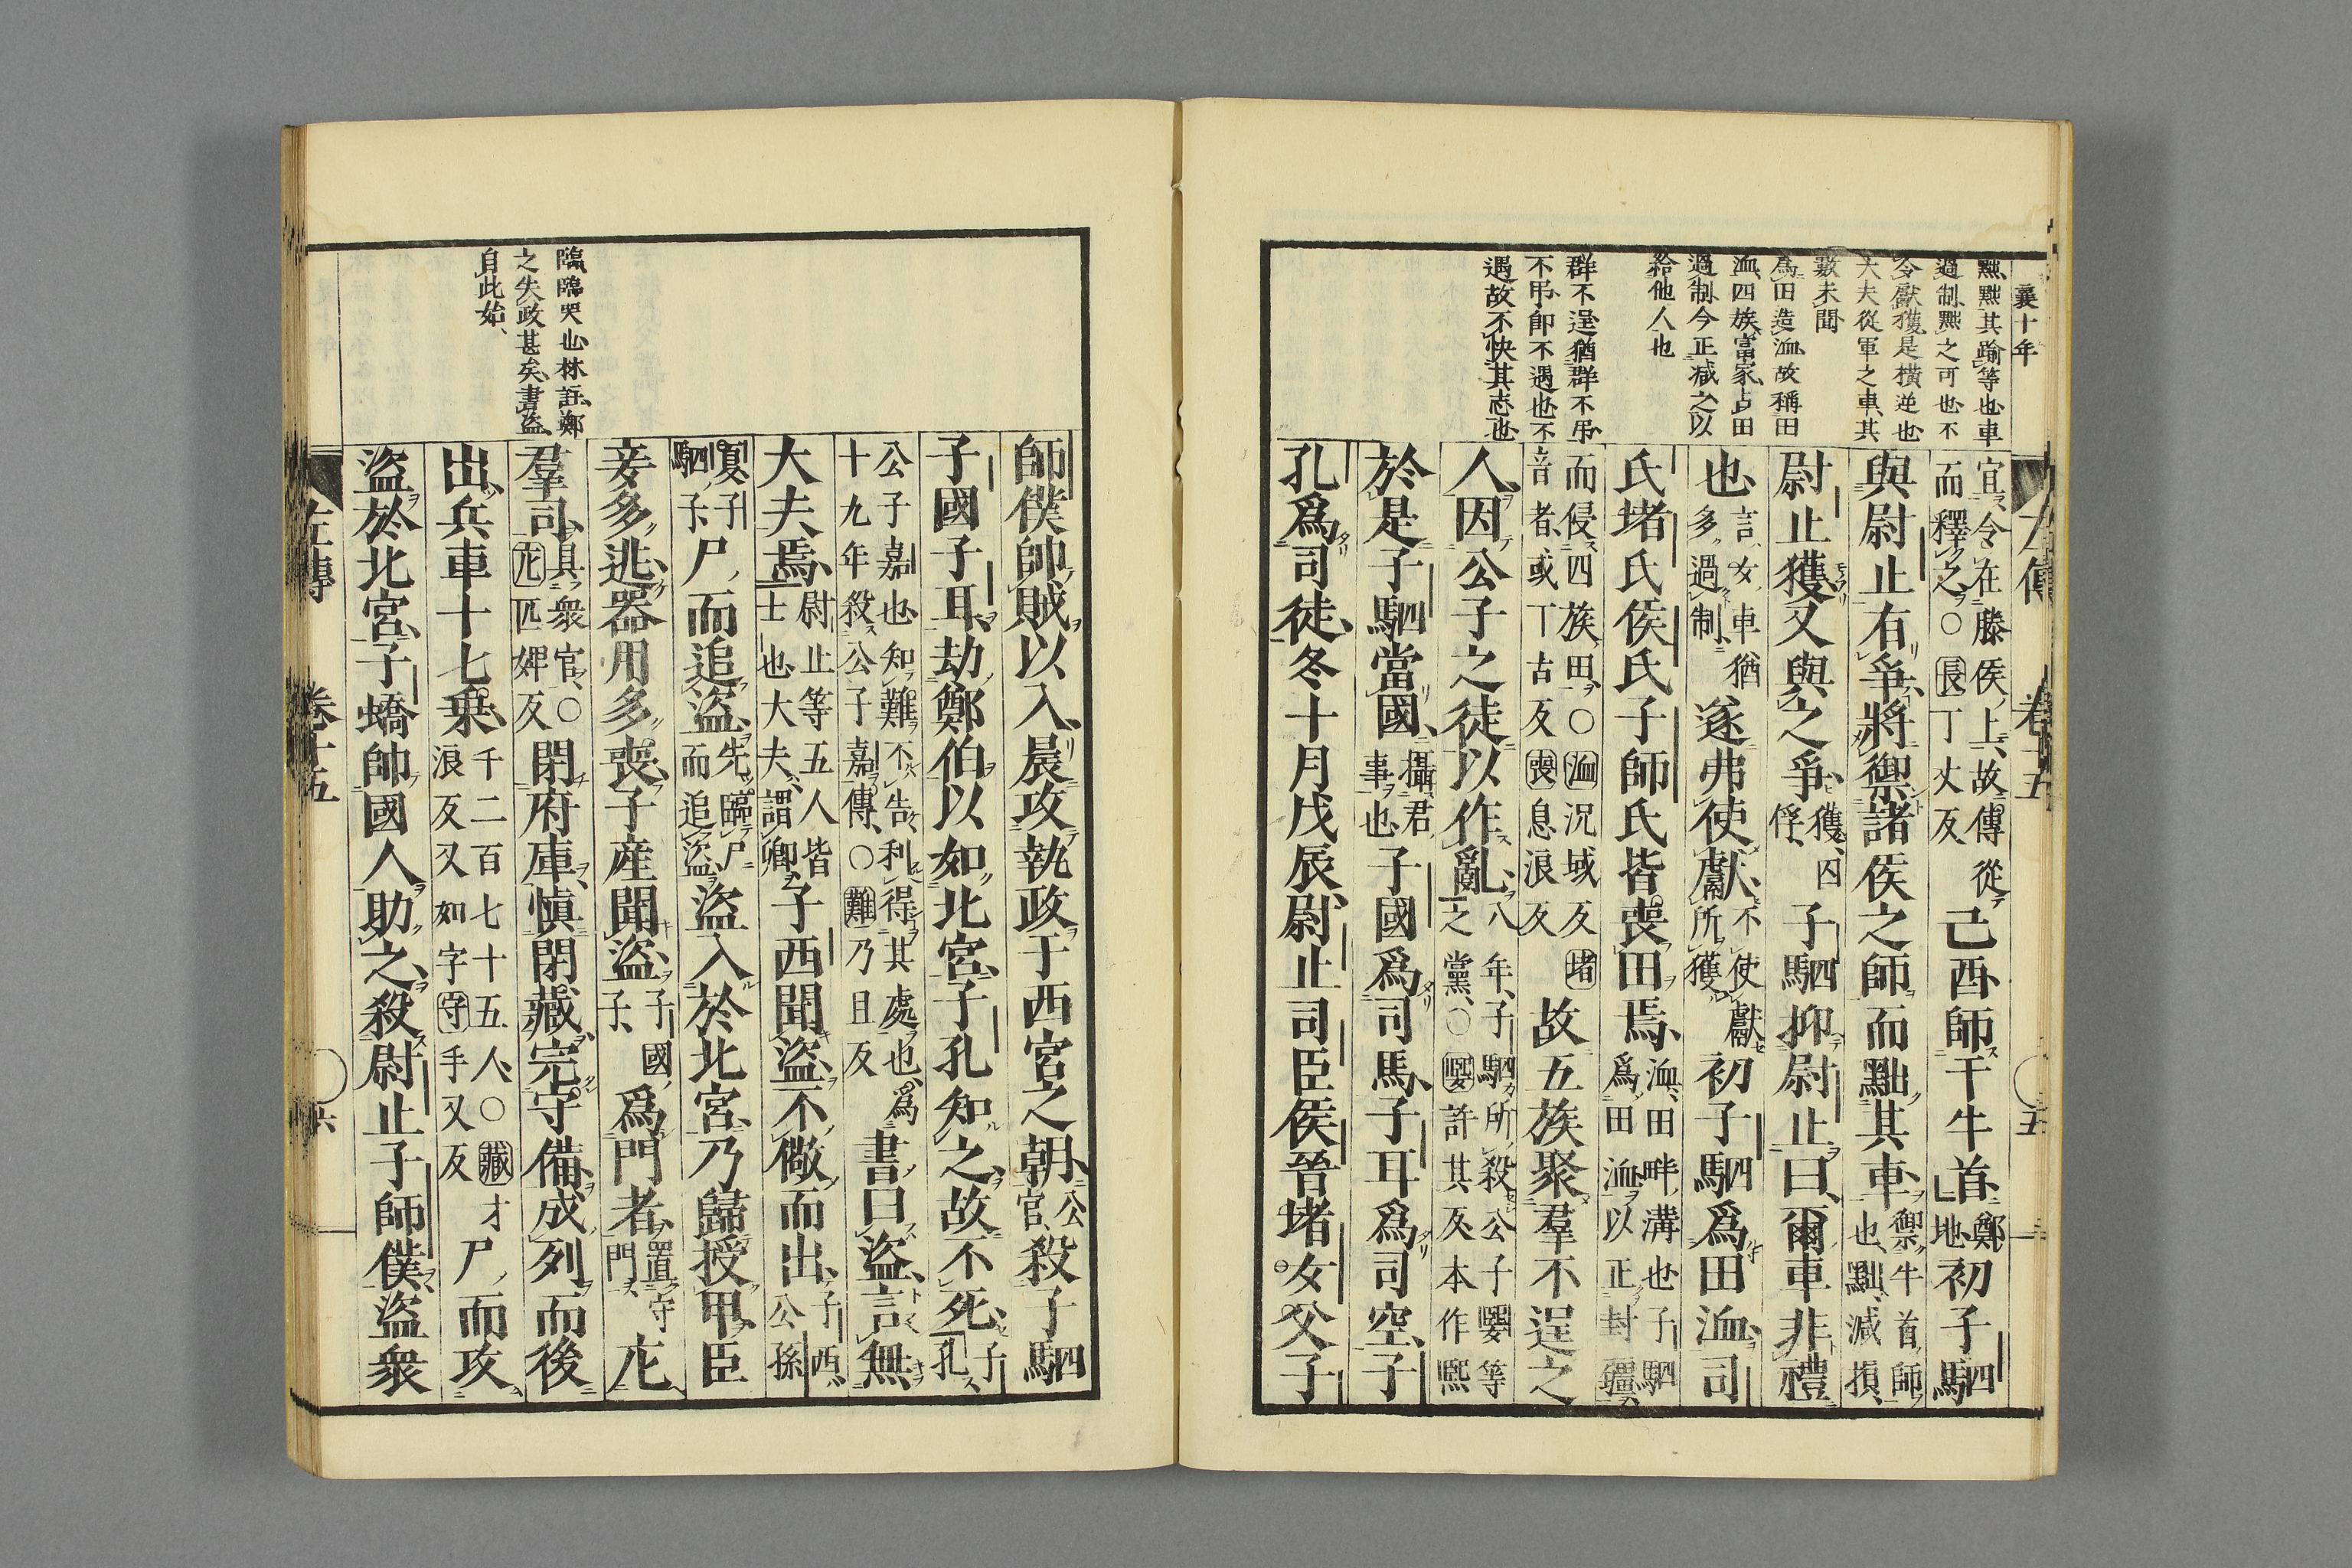 襄十年
黜黜其踰等也車
過制黜之可也不
令獻獲是橫逆也
大夫從軍之車其
數未聞
為田造洫故稱田
洫四族富家占田
過制今正減之以
給他人也
群不逞猶群不吊
不吊即不遇也不
遇故不快其志也
宜令在滕侯上故傳從
而釋之○長丁丈反
己酉師于牛首
鄭
地
初子駟
與尉止有爭將禦諸侯之師而黜其車
禦牛首師
也黜減損
尉止獲又與之爭
獲囚
俘
子駟抑尉止曰爾車非禮
也
言女車猶
多過制
遂弗使獻
不使獻
所獲
初子駟爲田洫司
氏堵氏侯氏子師氏皆喪田焉
洫田畔溝也子駟
爲田洫以正封疆
而侵四族田○洫況域反堵
音者或丁古反喪息浪反
故五族聚羣不逞之
人因公子之徒以作亂
八年子駟所殺公子嬰等
之黨○嬰許其反本作熙
於是子駟當國
攝君
事也
子國爲司馬子耳爲司空子
孔爲司徒冬十月戊辰尉止司臣侯晉堵女父子
左傳 卷十五 五
師僕帥賊以入晨攻執政于西宮之朝
公
官
殺子駟
子國子耳劫鄭伯以如北宮子孔知之故不死
子
孔
公子嘉也知難不告利得其處也爲
十九年殺公子嘉傳○難乃旦反
書曰盜言無
大夫焉
尉止等五人皆
士也大夫謂卿
子西聞盜不儆而出
子西
公孫
夏子
駟子
尸而追盜
先臨尸
而追盜
盜入於北宮乃歸授甲臣
妾多逃器用多喪子產聞盜
子國
子
爲門者
置守
門
庀
羣司
具衆官○
庀匹婢反
閉府庫愼閉藏完守備成列而後
出兵車十七乘
千二百七十五人○藏才
浪反又如字守手又反
尸而攻
盜於北宮子蟜帥國人助之殺尉止子師僕盜衆
臨臨哭也林註鄭
之失政甚矣書盜
自此始
左傳 卷十五 六